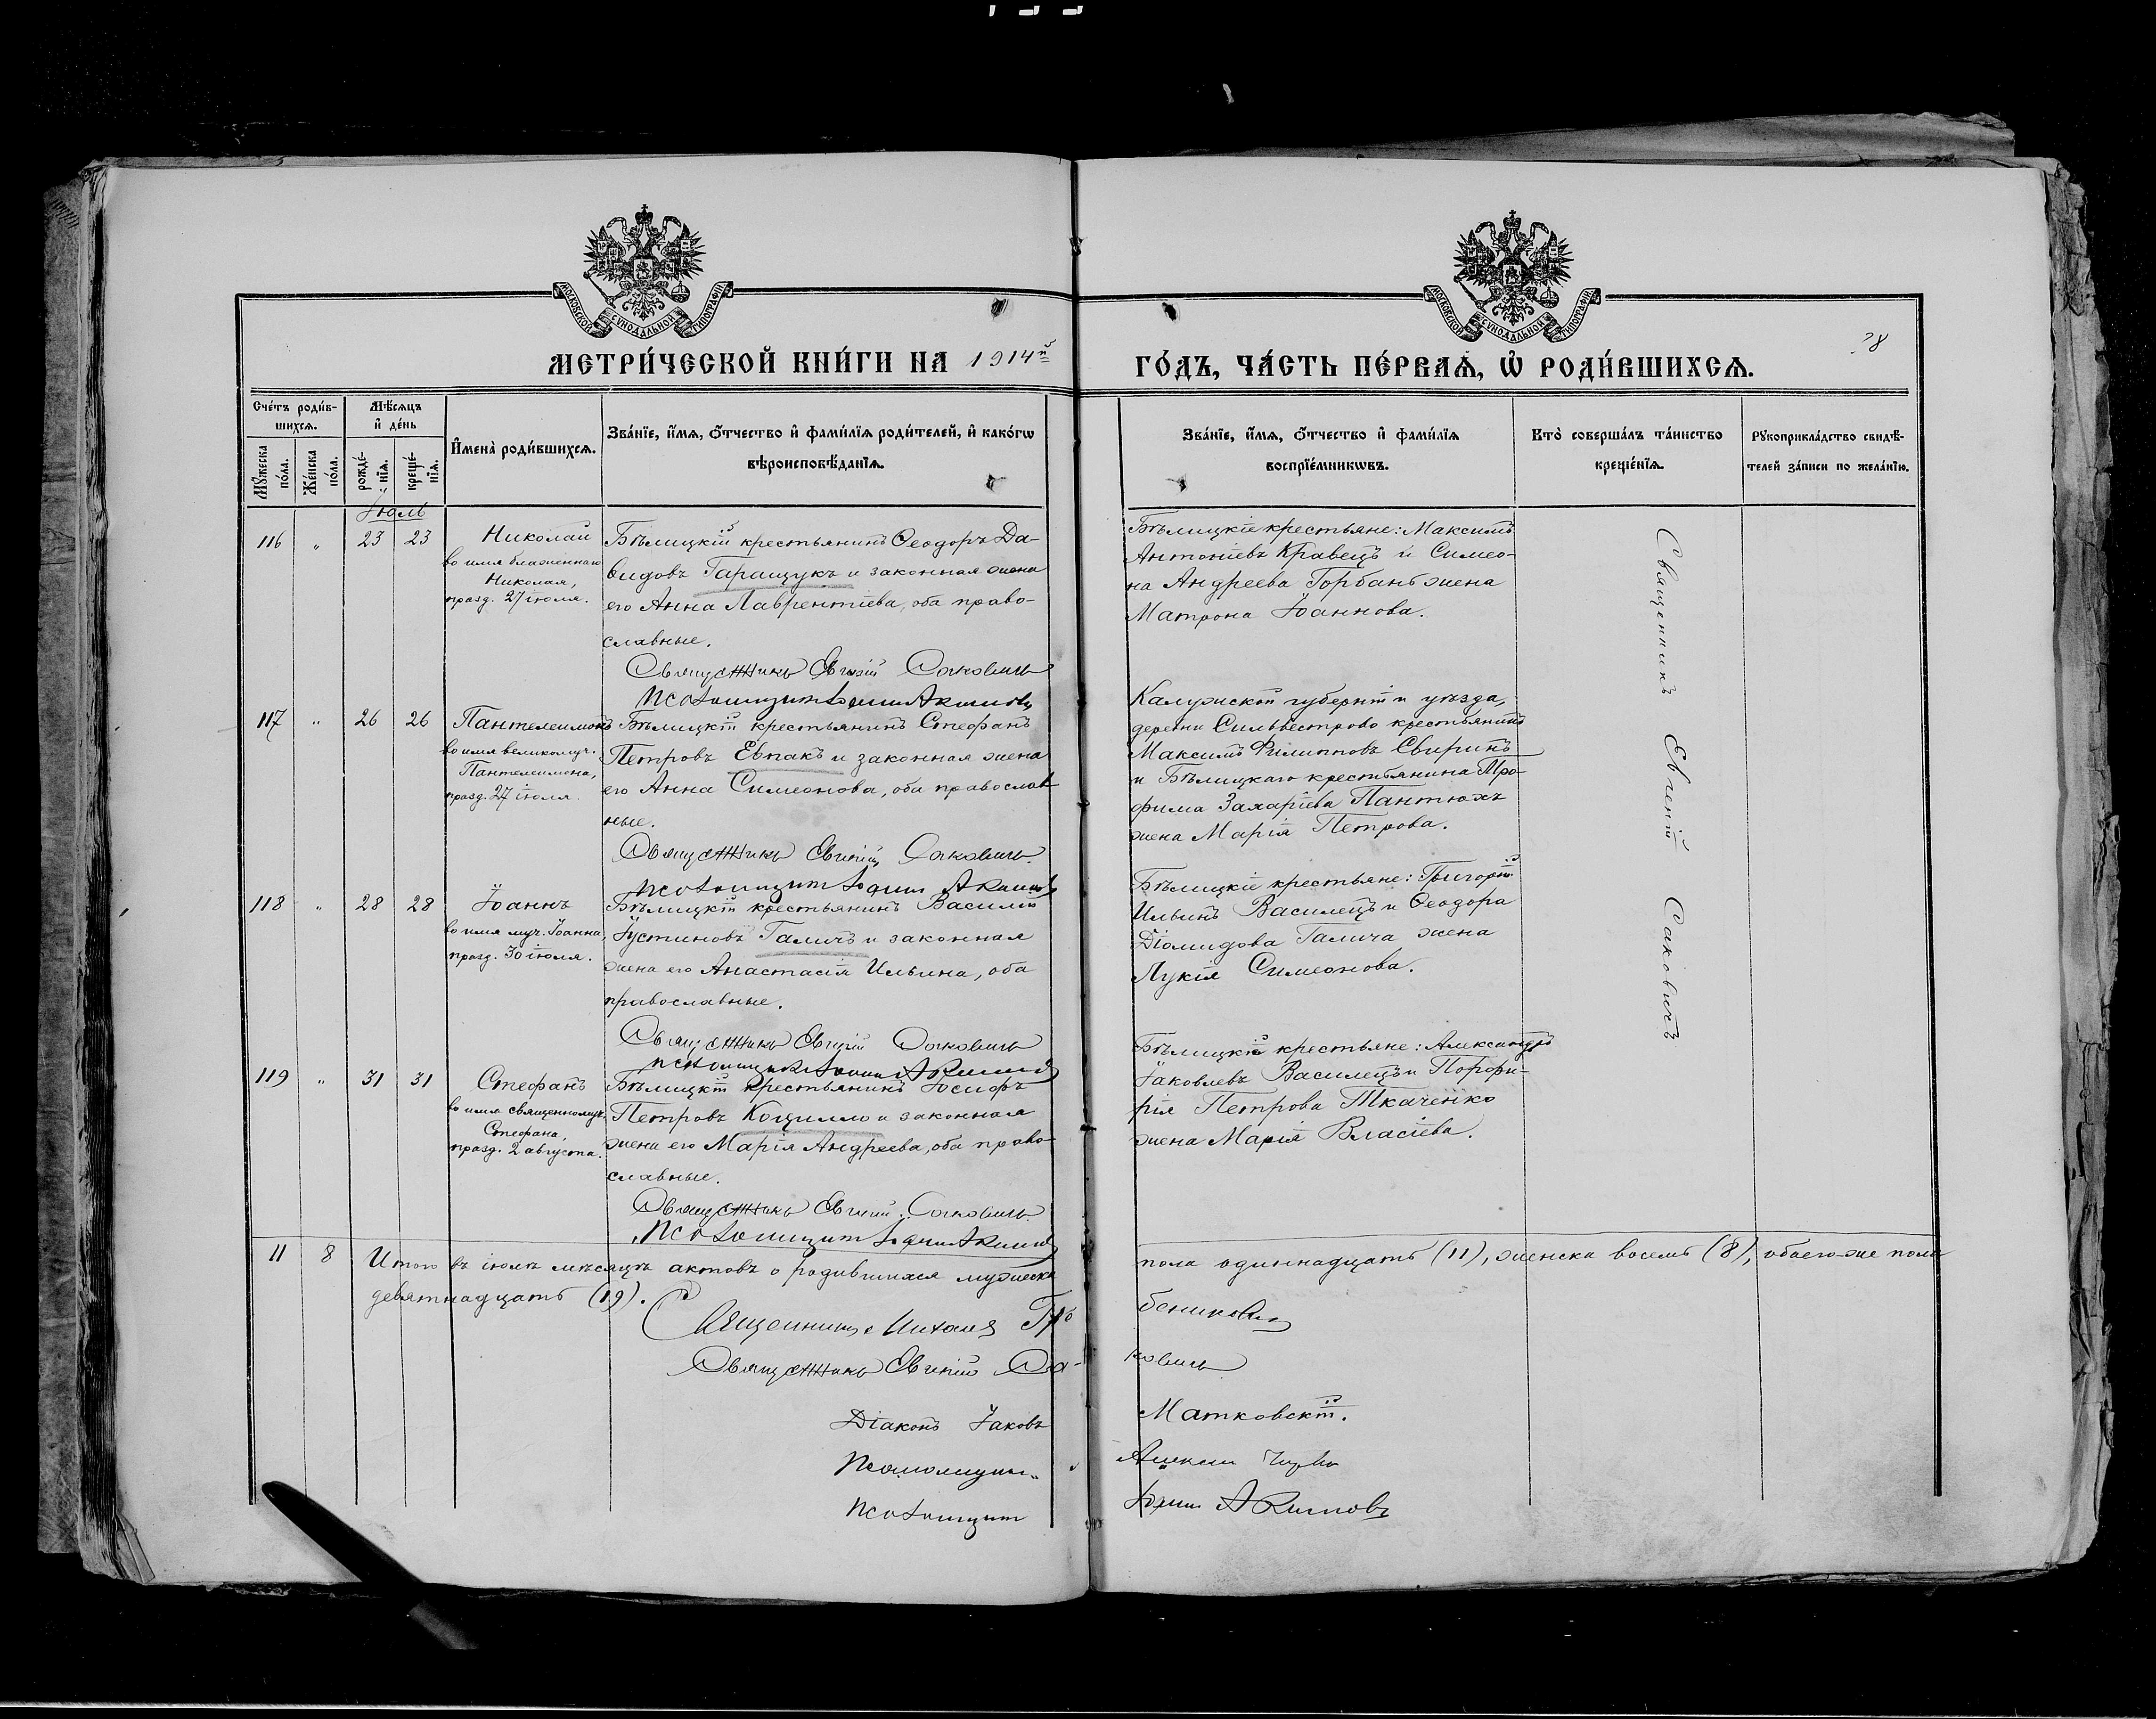 МОСКОВСКОЙ СѴНОДАЛЬНОЙ ТИПОГРАФІИ
МОСКОВСКОЙ СѴНОДАЛЬНОЙ ТИПОГРАФІИ
МЕТРИ́ЧЕСКОЙ КНИ́ГИ НА 1914й
ГО́ДЪ, ЧА́СТЬ ПЕ́РВАѦ, Ѡ РОДИ́ВШИХСѦ.
28
Сче́тъ роди́в-
шихсѧ.
Мꙋ́жеска по́ла.
Же́нска по́ла.
Мѣ́сѧцъ
и де́нь
рожде́-
нїѧ.
креще́-
нїѧ.
Имена̀ роди́вшихсѧ.
Зва́нїе, и́мѧ, ѻ́тчество и фами́лїѧ роди́телей, и како́гѡ
вѣроисповѣ́данїѧ.
Зва́нїе, и́мѧ, ѻ́тчество и фами́лїѧ
воспрїе́мникѡвъ.
Кто̀ соверша́лъ та́инство
креще́нїѧ.
Рꙋкоприкла́дство свидѣ́-
телей за́писи по жела́нїю.
Іюль
116 " 23 23
Николай
во имя блаженнаго
Николая,
празд. 27 іюля.
Бѣлицкій крестьянинъ Ѳеодоръ Да-
видовъ Таращукъ и законная жена
его Анна Лаврентіева, оба право-
славные.
Священникъ Евгеній Саковичъ
Псаломщикъ Акимовъ
Бѣлицкіе крестьяне: Максимъ
Антоніевъ Кравецъ и Симео-
на Андреева Горбань жена
Матрона Іоаннова.
Священникъ Евгеній Саковичъ
117 " 26 26
Пантелеимонъ
во имя великомуч.
Пантелеимона,
празд. 27 іюля.
Бѣлицкій крестьянинъ Стефанъ
Петровъ Евпакъ и законная жена
его Анна Симеонова, оба православ-
ные.
Священникъ Евгеній Саковичъ
Псаломщикъ Акимовъ
Калужской губерніи и уѣзда,
деревни Сильвестрово крестьянинъ
Максимъ Филипповъ Свиринъ
и Бѣлицкаго крестьянина Тро-
фима Захаріева Пантюхъ
жена Марія Петрова.
118 " 28 28
Іоаннъ
во имя муч. Іоанна,
празд. 30 іюля.
Бѣлицкій крестьянинъ Василій
Іустиновъ Галичъ и законная
жена его Анастасія Ильина, оба
православные.
Священникъ Евгеній Саковичъ
Псаломщикъ Акимовъ
Бѣлицкіе крестьяне: Григорій
Ильинъ Василецъ и Ѳеодора
Діомидова Галича жена
Лукія Симеонова.
119 " 31 31
Стефанъ
во имя священномуч.
Стефана,
празд. 2 августа.
Бѣлицкій крестьянинъ Іосифъ
Петровъ Коцилло и законная
жена его Марія Андреева, оба право-
славные.
Священникъ Евгеній Саковичъ
Псаломщикъ Акимовъ
Бѣлицкіе крестьяне: Александръ
Іаковлевъ Василецъ и Порфи-
рія Петрова Ткаченко
жена Марія Власіева.
11 8 Итого въ іюлѣ мѣсяцѣ актовъ о родившихся мужеска пола одиннадцать (11), женска восемь (8), обоего-же пола
девятнадцать (19).
Священникъ Михаилъ
Священникъ Евгеній Саковичъ
Діаконъ Іаковъ Матковскій.
Псаломщикъ Алексѣй
Псаломщикъ Акимовъ